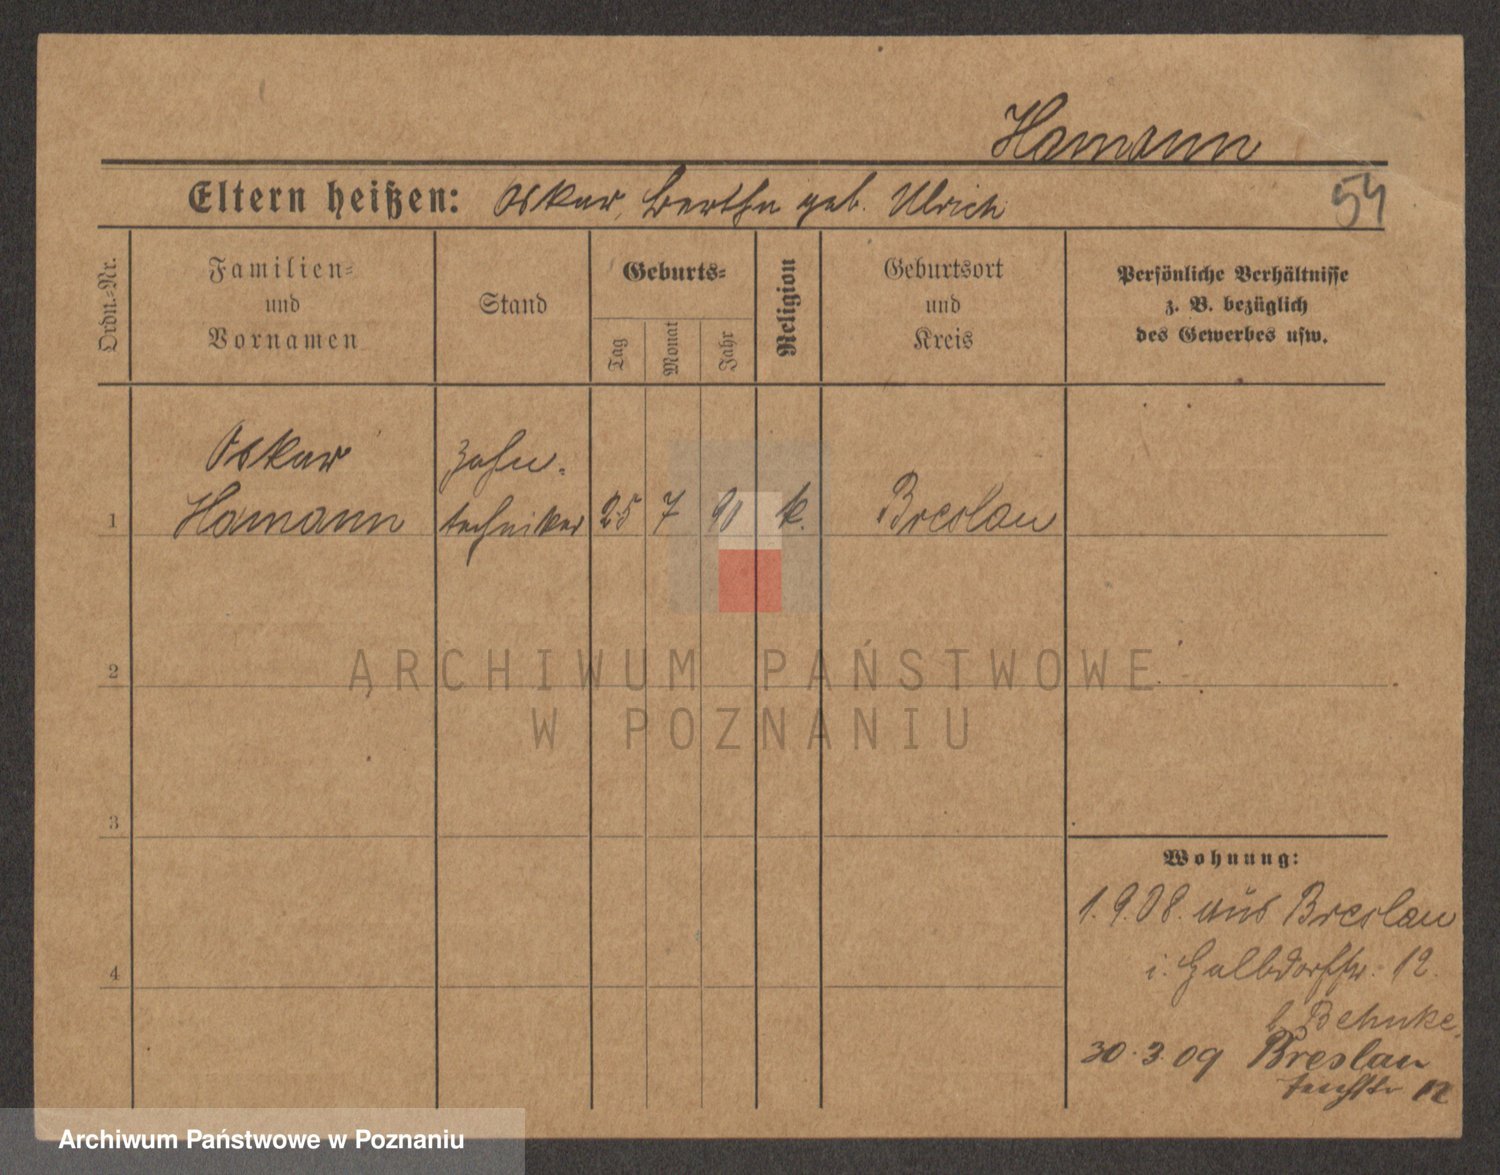 Hamann
Eltern heißen: Oskar, Bertha geb. Ulrich
54
Ordn.-Nr.
Familien-
und
Vornamen
Stand
Geburts-
Tag
Monat
Jahr
Religion
Geburtsort
und
Kreis
Persönliche Verhältnisse
z. B. bezüglich
des Gewerbes usw.
Oskar Zahn-
1 Hamann techniker 25 7 90 k. Breslau
2
ARCHIWUM PAŃSTWOWE
W POZNANIU
3
Wohnung:
1.9.08. aus Breslau
4
12.
b. Behnke.
30.3.09 Breslau
12
Archiwum Państwowe w Poznaniu